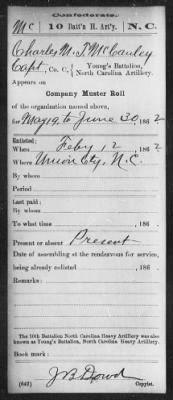 Confederate.
Mc | 10 Batt'n H. Art'y. | N. C.
Charles M. T. McCauley
Capt, Co. C, Young's Battalion, North Carolina Artillery.
Appears on
Company Muster Roll
of the organization named above,
for May 19, to June 30, 1862
Enlisted:
When Feby 12, 1862
Where Union Cty, N.C.
By whom
Period
Last paid:
By whom
To what time , 186
Present or absent Present
Date of assembling at the rendezvous for service,
being already enlisted , 186 .
Remarks:
The 10th Battalion North Carolina Heavy Artillery was also
known as Young's Battalion, North Carolina Heavy Artillery.
Book mark:
J B Dowd
(642) Copyist.